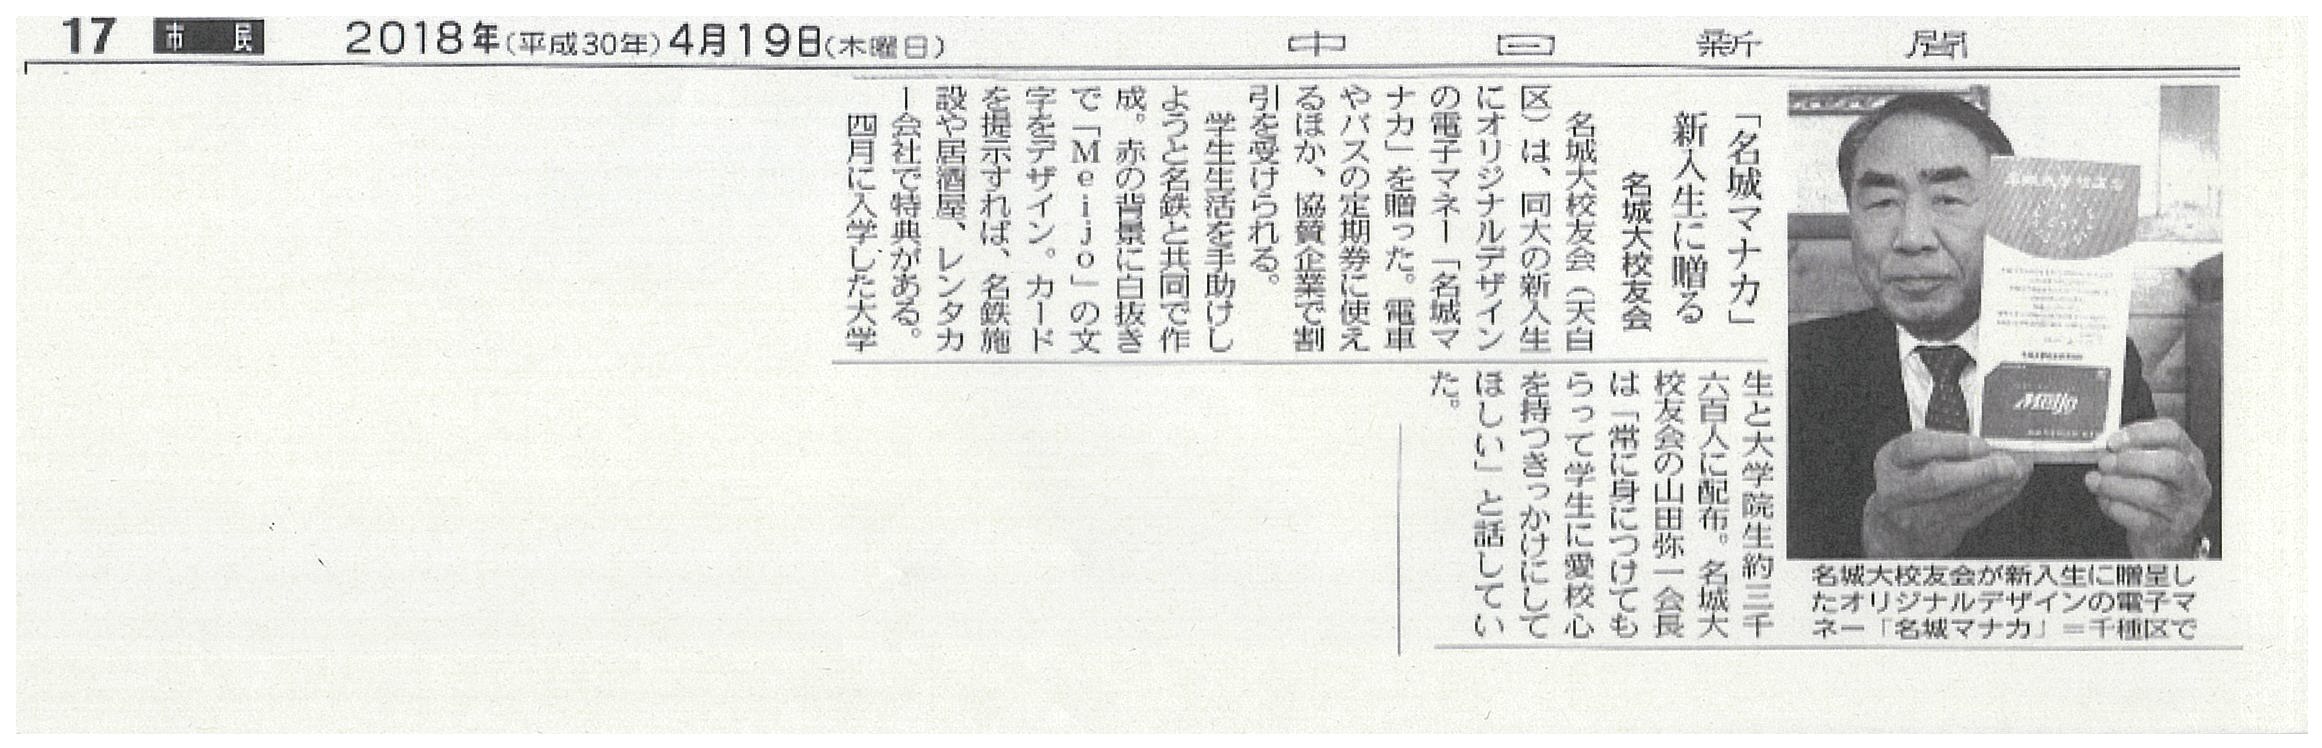 17 市民 2018年(平成30年)4月19日(木曜日) 中日新聞
「名城マナカ」
新入生に贈る
名城大校友会
名城大校友会（天白
区）は、同大の新入生
にオリジナルデザイン
の電子マネー「名城マ
ナカ」を贈った。電車
やバスの定期券に使え
るほか、協賛企業で割
引を受けられる。
学生生活を手助けし
ようと名鉄と共同で作
成。赤の背景に白抜き
で「Meijo」の文
字をデザイン。カード
を提示すれば、名鉄施
設や居酒屋、レンタカ
ー会社で特典がある。
四月に入学した大学
生と大学院生約三千
六百人に配布。名城大
校友会の山田弥一会長
は「常に身につけても
らって学生に愛校心
を持つきっかけにして
ほしい」と話してい
た。
Meijo
名城大校友会が新入生に贈呈し
たオリジナルデザインの電子マ
ネー「名城マナカ」＝千種区で